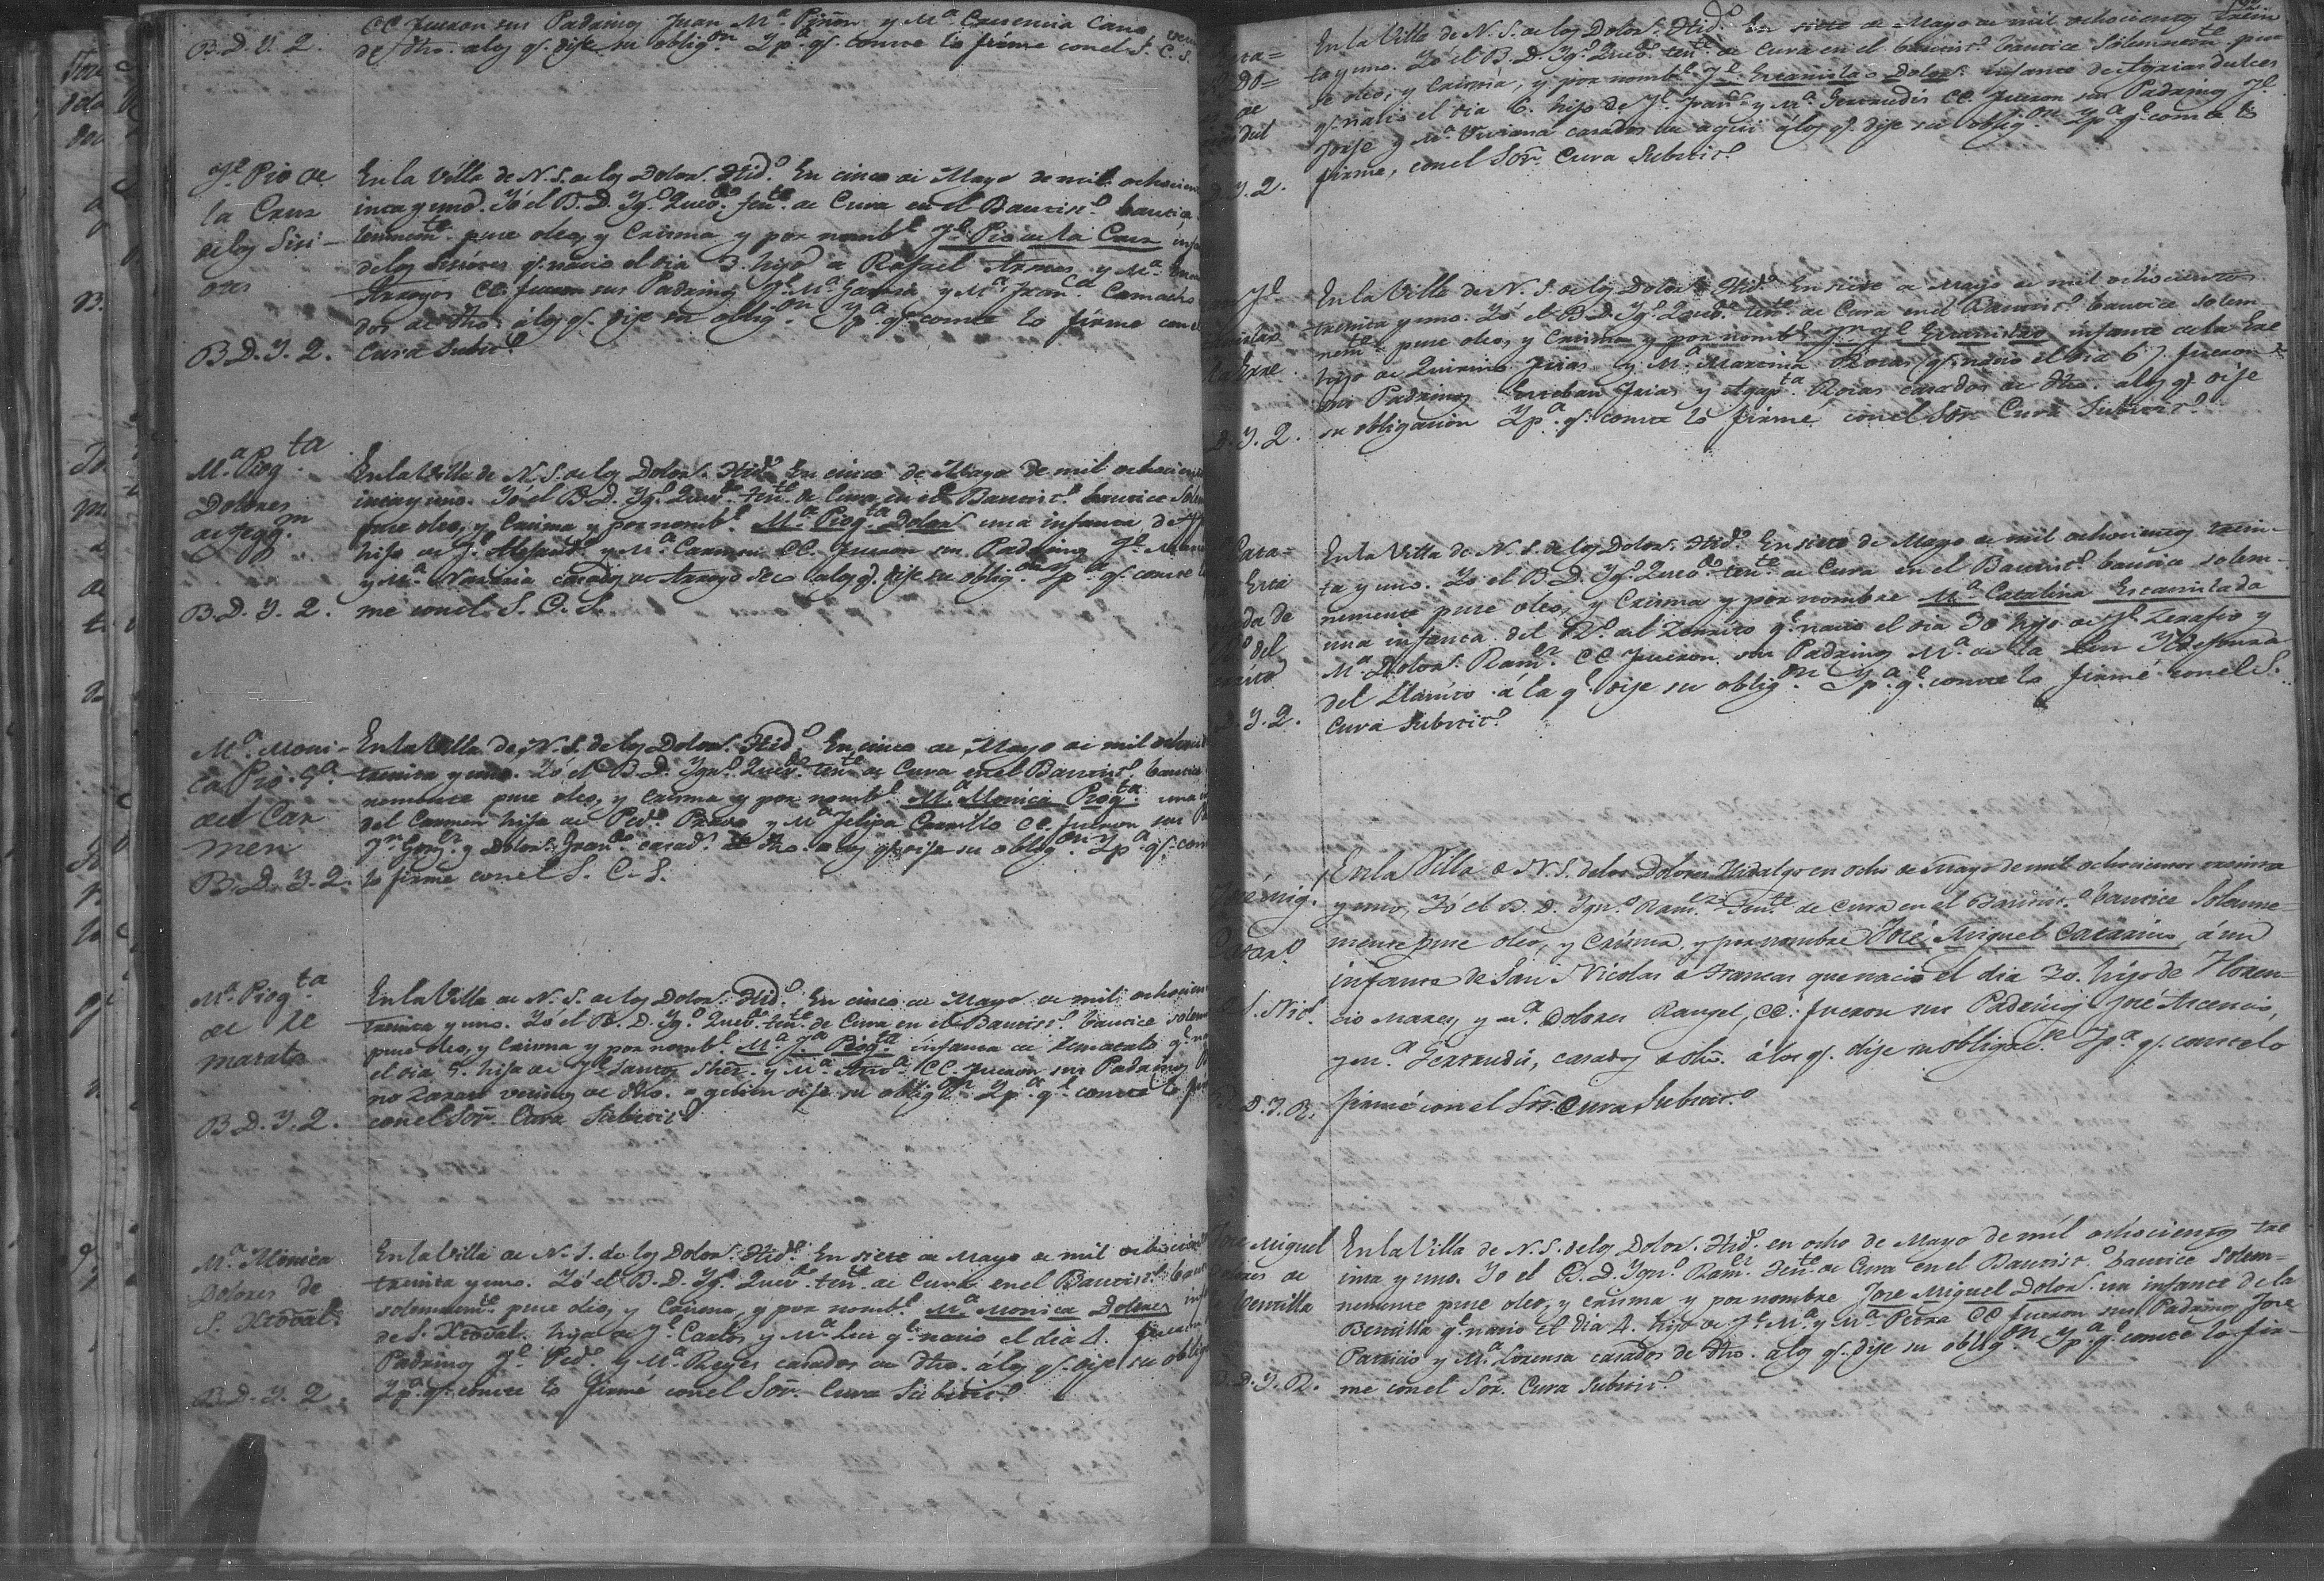 CC. fueron sus Padrinos Juan Ma. Piñon y Ma. Crecencia Cano
de dho. a los qs. dije su obligon. Y pa. qe. conste lo firmé con el S. C. S.
B. D. Y. Q.
Je. Pio de
la Cruz
de los Sisi-
ones
B. D. Y. Q.
En la Villa de N. S. de los Dolors. Hido. En cinco de Mayo de mil ochocien
inta y uno. Yó el B. D. Ygo. Quevo. tente. de Cura en el Bautiso. bautice
lemnemte. puse oleo, y Crisma y por nombe. Je. Pio de la Cruz
de los Sisiones qe. nacio el dia 3. hijo de Rafael Armas y Ma.
Arroyos CC. fueron sus Padrinos Je. Ma. Garcia y Ma. Franca. Camacho
dos de dho. á los qs. dije su obligon. Y pa. qe. conste lo firmé con el
Cura Subscto.
Ma. Piogta.
Dolores
de Tequqm.
B. D. Y. Q.
En la Villa de N. S. de los Dolors. Hido. En cinco de Mayo de mil ochocien
inta y uno. Yó el B. D. Ygo. Quevo. tente. de Cura en el Bautiso. bautice
puse oleo, y Crisma y por nombe. Ma. Piogta. Dolors. una infanta de
hija de Je. Alejando. y Ma. Carmen CC. fueron sus Padrinos Je.
y Ma. Navaria casados de Arroyo seco a los qs. dije su obligon. Y pa. qe. conste
me con el S. C. S.
Ma. Moni-
ca Pio. Ga.
del Car
men
B. D. Y. Q.
En la Villa de N. S. de los Dolors. Hido. En cinco de Mayo de mil ochoci
treinta y uno. Yó el B. D. Ygno. Quevo. tente. de Cura en el Bautiso. bautice
nemente puse oleo, y crisma y por nombe. Ma. Monica Piogta. una
del Carmen hija de Pedo. Bravo y Ma. Felipa Carrillo CC. fueron sus
Jn. Gonzz. y Dolors. Grano. casads. de dho. a los qs. dije su obligon. Y pa. qe. con
lo firmé con el S. C. S.
Ma. Piogta.
de Te
matate
B. D. Y. Q.
En la Villa de N. S. de los Dolors. Hido. En cinco de Mayo de mil ochocien
treinta y uno. Yó el B. D. Ygo. Quevo. tente. de Cura en el Bautiso. bautice solem
puse oleo, y Crisma y por nombe. Ma. Ja. Piogta. infanta de Tematate qe.
el dia 5. hija de Je. Santos Shez. y Ma. Anta. CC. fueron sus Padrinos
no Zarate vecino de dho. a quien dije su obligon. Y pa. qe. conste lo
con el Sor. Cura Subscto.
Ma. Monica
Dolores de
S. Xtoval.
B. D. Y. Q.
En la Villa de N. S. de los Dolors. Hido. En siete de Mayo de mil ochocien
treinta y uno. Yó el B. D. Ygo. Quevo. tente. de Cura en el Bautiso. baut
solemnemte. puse oleo, y Crisma, y por nombe. Ma. Monica Dolores
de S. Xtoval. hija de Je. Carlos y Ma. Luz qe. nacio el dia 4. fueron
Padrinos Je. Pedo. y Ma. Reyes casados de dho. á los qs. dije su oblig
Y pa. qe. conste lo firmé con el Sor. Cura Subscto.
D. Y. Q.
En la Villa de N. S. de los Dolors. Hido. En siete de Mayo de mil ochocientos trein
ta y uno. Yó el B. D. Ygo. Quevo. tente. de Cura en el bautiso. bautice solemnemte. pu
se oleo, y Crisma, y por nombe. Je. Estanislao Dolors. infante de Agrias dulces
qe. nacio el dia 6. hijo de Je. Frano. y Ma. Gertrudis CC. fueron sus Padrinos Je.
Jorje y Ma. Viviana casados de aqui á los qs. dije su obligon. Y pa. qe. conste lo
firmé, con el Sor. Cura Subscto.
D. Y. Q.
En la Villa de N. S. de los Dolors. Hido. En siete de Mayo de mil ochocientos
treinta y uno. Yó el B. D. Ygo. Quevo. tente. de Cura en el Bautiso. bautice solem
nemte. puse oleo, y Crisma y por nombe. Jn. Je. Estanislao infante de la Ere
hijo de Quirino Frias y Ma. Maxima Rosas (qe. nacio el dia 6). fueron
sus Padrinos Esteban Frias y Agapta. Rosas casados de dho. a los qs. dije
su obligacion Y pa. qe. conste lo firmé con el Sor. Cura Subscto.
Cata=
D. Y. Q.
En la Villa de N. S. de los Dolors. Hido. En siete de Mayo de mil ochocientos trein-
ta y uno. Yo el B. D. Ygo. Quevo. tente. de Cura en el Bautiso. bautice solem-
nemente puse oleo, y Crisma y por nombre Ma. Catalina Estanislada
una infanta del Ro. del Zorrito qe. nacio el dia 30 hija de Je. Zerafio y
Ma. Dolors. Ramz. CC. fueron sus Padrinos Ma. de la Luz Yldefonsa
del Llanito á la qe. dije su obligon. Y pa. qe. conste lo firmé con el S.
Cura Subscto.
José Mig.
Catarno.
S. Nico.
B. D. Y. R.
En la Villa de N. S. de los Dolores Hidalgo en ocho de Mayo de mil ochocientos treinta
y uno, Yó el B. D. Ygno. Ramz. Tente. de Cura en el Bautiso. bautice Solemne-
mente puse oleo, y Crisma, y por nombre José Miguel Catarino, á un
infante de San Nicolas de Trancas que nacio el dia 30. hijo de Floren-
cio Mares, y Ma. Dolores Rangel, CC. fueron sus Padrinos José Ascencio,
y Ma. Gertrudis, casados de dho. á los qs. dije su obligacn. Y pa. qe. conste lo
firmé con el Sor. Cura Subscto.
Jose Miguel
Dolores de
Ventilla
B. D. Y. R.
En la Villa de N. S. de los Dolors. Hido. en ocho de Mayo de mil ochocientos tre
inta y uno. Yo el B. D. Ygno. Ramz. Tente. de Cura en el Bautiso. bautice solem-
nemente puse oleo, y crisma y por nombre Jose Miguel Dolors. un infante de la
Bentilla qe. nacio el dia 4. hijo de Je. Ma. y Ma. Petra CC. fueron sus Padrinos Jose
Patricio y Ma. Lorensa casados de dho. a los qs. dije su obligon. Y pa. qe. conste lo fir-
me con el Sor. Cura Subscto.